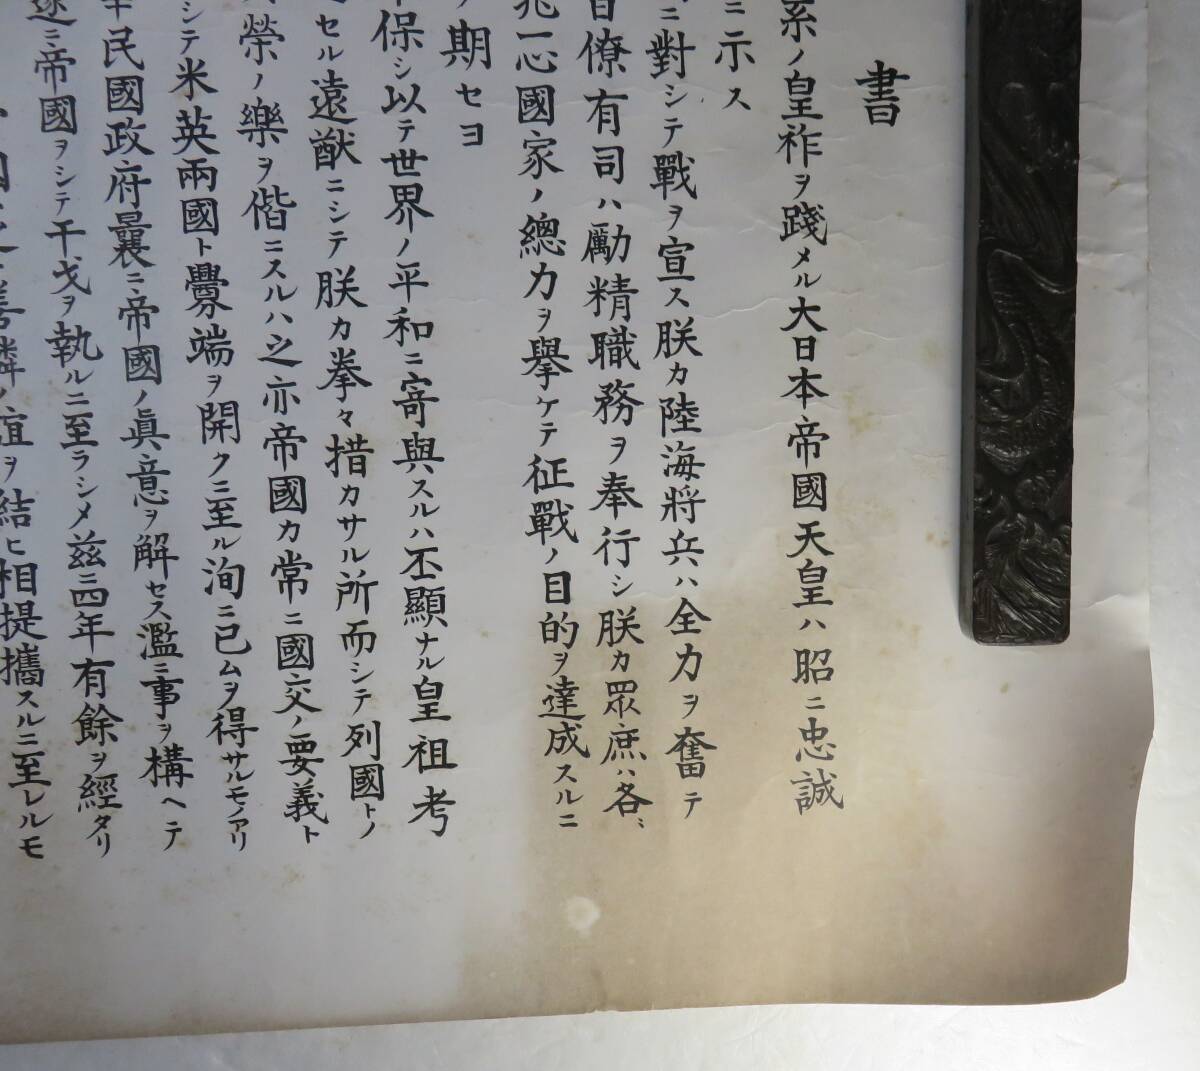 書
系ノ皇祚ヲ踐メル大日本帝國天皇ハ昭ニ忠誠
ニ示ス
ニ對シテ戰ヲ宣ス朕カ陸海將兵ハ全力ヲ奮テ
百僚有司ハ勵精職務ヲ奉行シ朕カ眾庶ハ各〻
兆一心國家ノ總力ヲ擧ケテ征戰ノ目的ヲ達成スルニ
ノ期セヨ
保シ以テ世界ノ平和ニ寄與スルハ丕顯ナル皇祖考
セル遠猷ニシテ朕カ拳々措カサル所而シテ列國トノ
榮ノ樂ヲ偕ニスルハ之亦帝國カ常ニ國交ノ要義ト
シテ米英兩國ト釁端ヲ開クニ至ル洵ニ已ムヲ得サルモノアリ
民國政府曩ニ帝國ノ眞意ヲ解セス濫ニ事ヲ構ヘテ
遂ニ帝國ヲシテ干戈ヲ執ルニ至ラシメ茲ニ四年有餘ヲ經タリ
善隣ノ誼ヲ結ヒ相提攜スルニ至レルモ